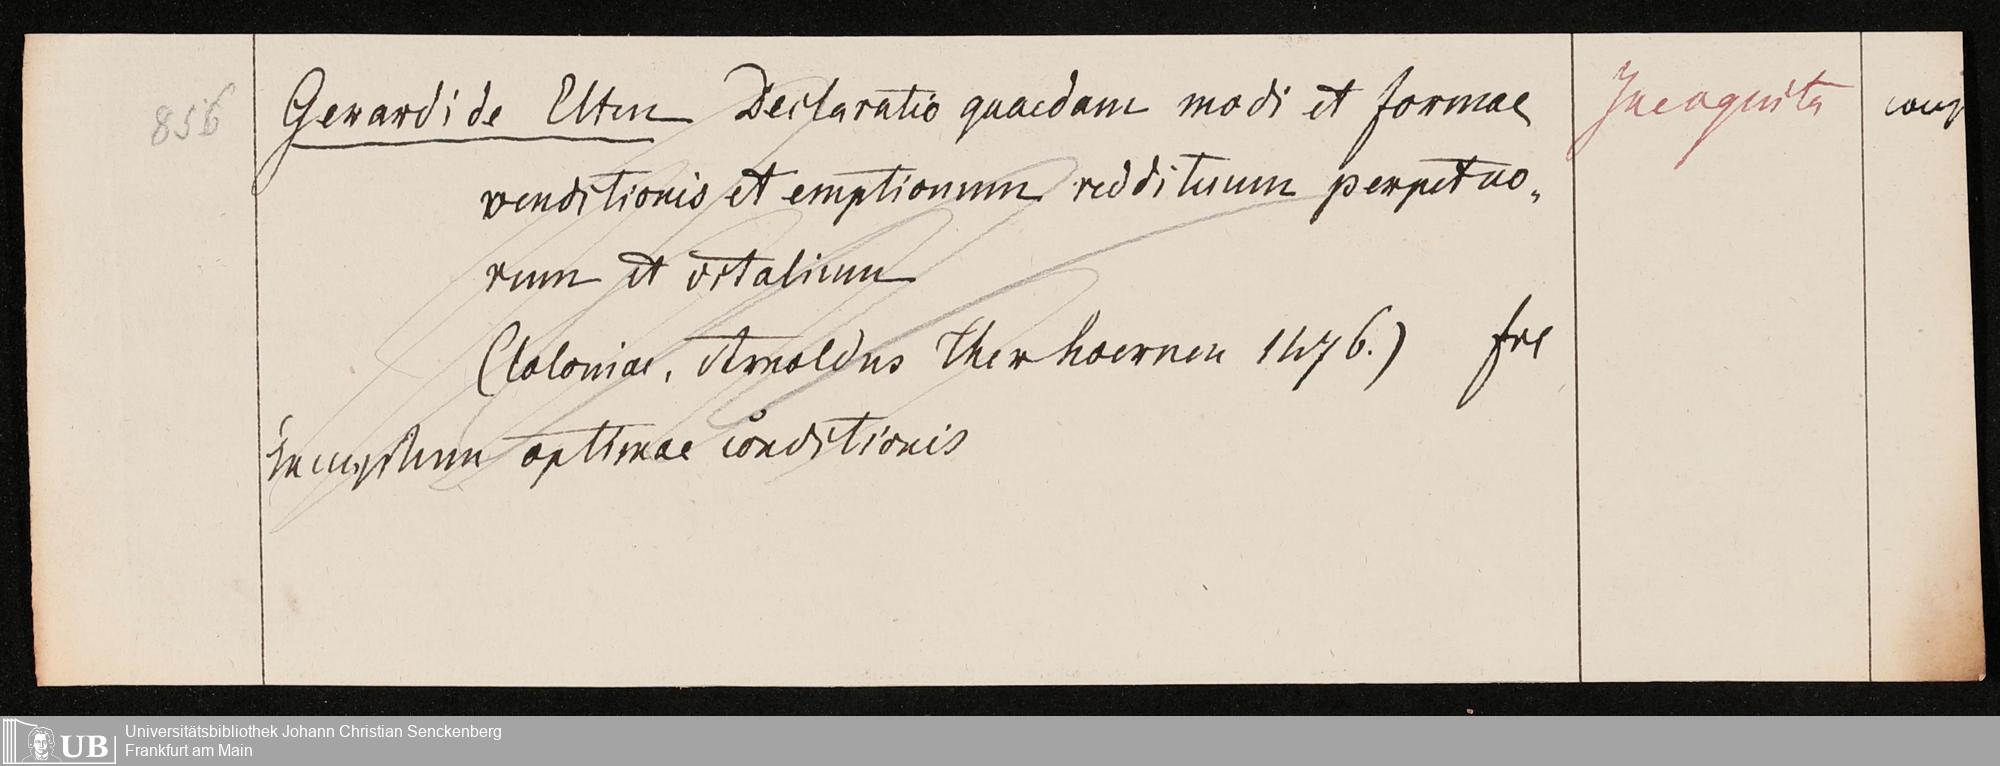 856
Gerardi de Elten Declaratio quaedam modi et formae
venditionis et emptionum reddituum perpetuo-
rum et vitalium
(Coloniae, Arnoldus Therhoernen 1476.) fol
optimae conditionis
Incognita
comp
UB
Universitätsbibliothek Johann Christian Senckenberg
Frankfurt am Main